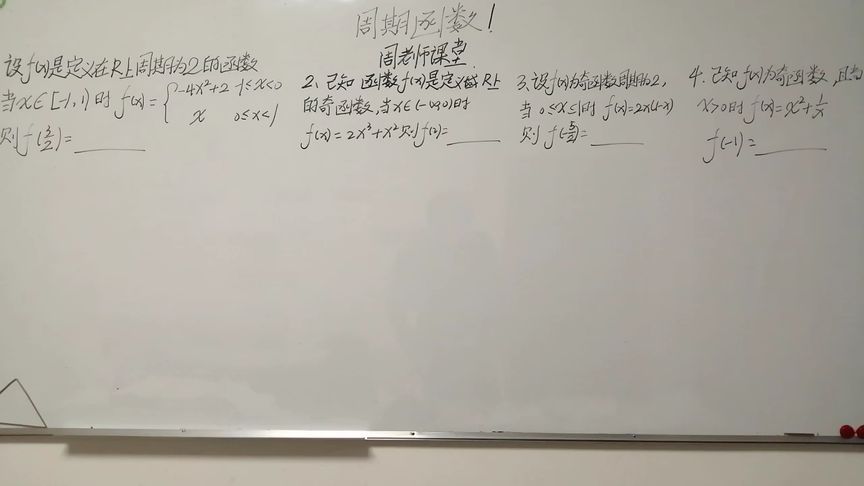 周期函数!
周老师课堂
设f(x)是定义在R上周期为2的函数
当x∈[-1,1)时 f(x)={-4x²+2 -1≤x<0
x 0≤x<1
则f(3/2)=______
2、已知 函数f(x)是定义在R上
的奇函数,当x∈(-∞,0)时
f(x)=2x³+x²则f(2)=______
3、设f(x)为奇函数周期为2,
当 0≤x≤1时 f(x)=2x(1-x)
则 f(-5/2)=______
4、已知f(x)为奇函数,且当
x>0时 f(x)=x²+1/x
f(-1)=______